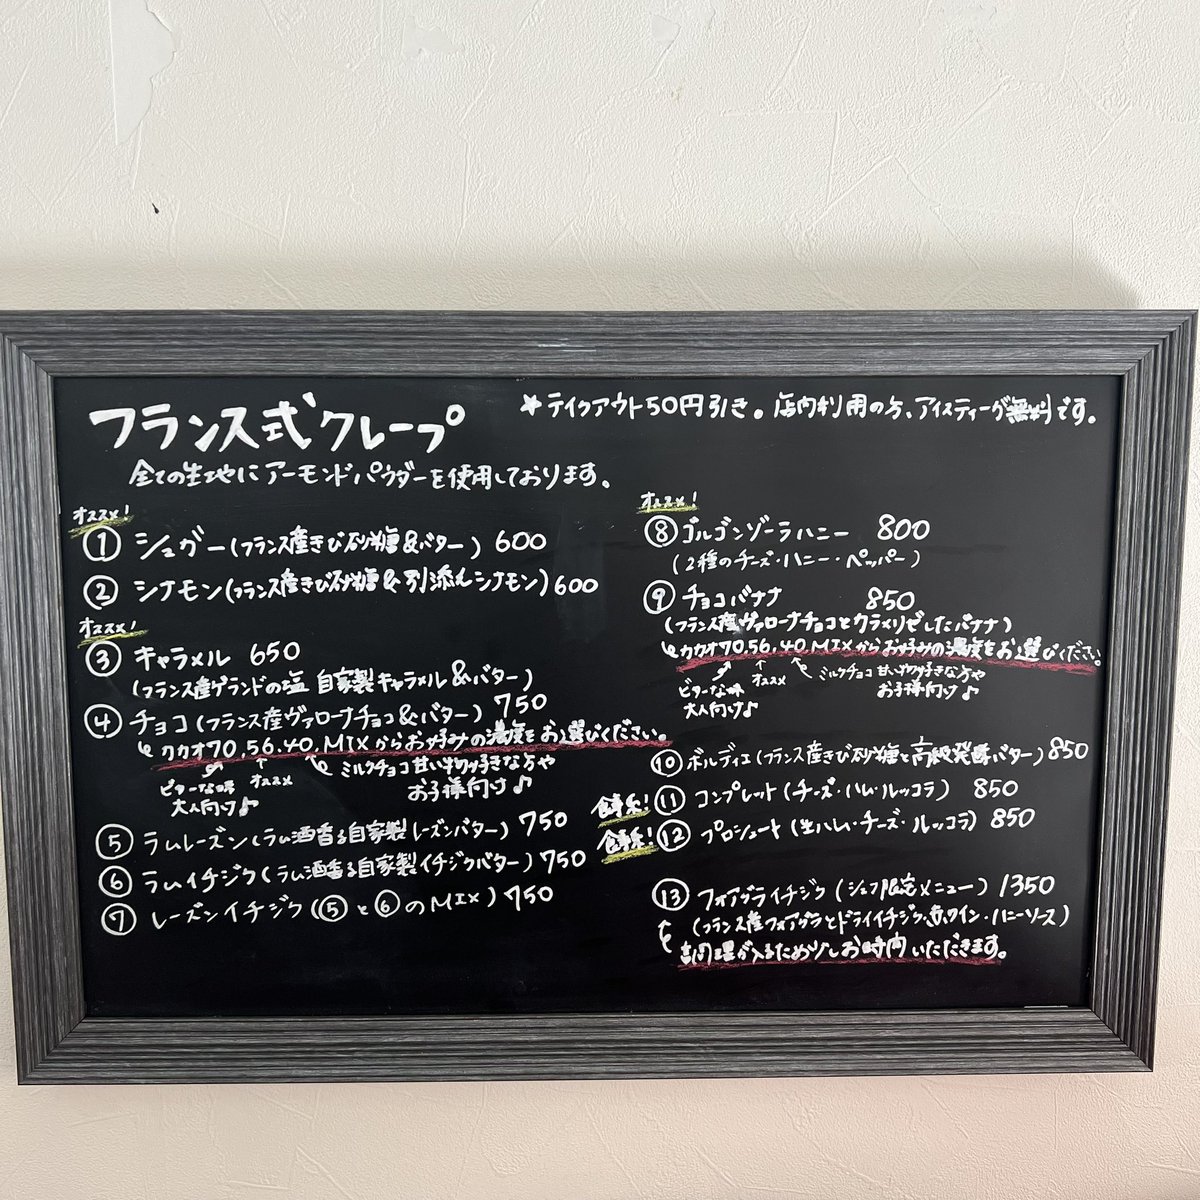 フランス式クレープ
★テイクアウト50円引き。店内利用の方、アイスティーが無料です。
全ての生地にアーモンドパウダーを使用しております。
オススメ!
① シュガー(フランス産きび砂糖&バター) 600
② シナモン(フランス産きび砂糖&引添えシナモン) 600
オススメ!
③ キャラメル 650
(フランス産ゲランドの塩 自家製キャラメル&バター)
④ チョコ(フランス産ヴァローナチョコ&バター) 750
カカオ70,56,40,MIXからお好みの濃度をお選びください。
ビターな味
大人向け♪
オススメ
ミルクチョコ 甘い物好きな方や
お子様向け♪
⑤ ラムレーズン(ラム酒香る自家製レーズンバター) 750
⑥ ラムイチジク(ラム酒香る自家製イチジクバター) 750
⑦ レーズンイチジク(⑤と⑥のMIX) 750
オススメ!
⑧ ゴルゴンゾーラハニー 800
(2種のチーズ・ハニー・ペッパー)
⑨ チョコバナナ 850
(フランス産ヴァローナチョコとカラメリゼしたバナナ)
カカオ70,56,40,MIXからお好みの濃度をお選びください。
ビターな味
大人向け♪
オススメ
ミルクチョコ 甘い物好きな方や
お子様向け♪
⑩ ボルディエ(フランス産きび砂糖と高級発酵バター) 850
食事系! ⑪ コンプレット(チーズ・ハム・ルッコラ) 850
食事系! ⑫ プロシュート(生ハム・チーズ・ルッコラ) 850
⑬ フォアグライチジク(シェフ限定メニュー) 1350
(フランス産フォアグラとドライイチジク・赤ワイン・ハニーソース)
調理が入るため少しお時間いただきます。